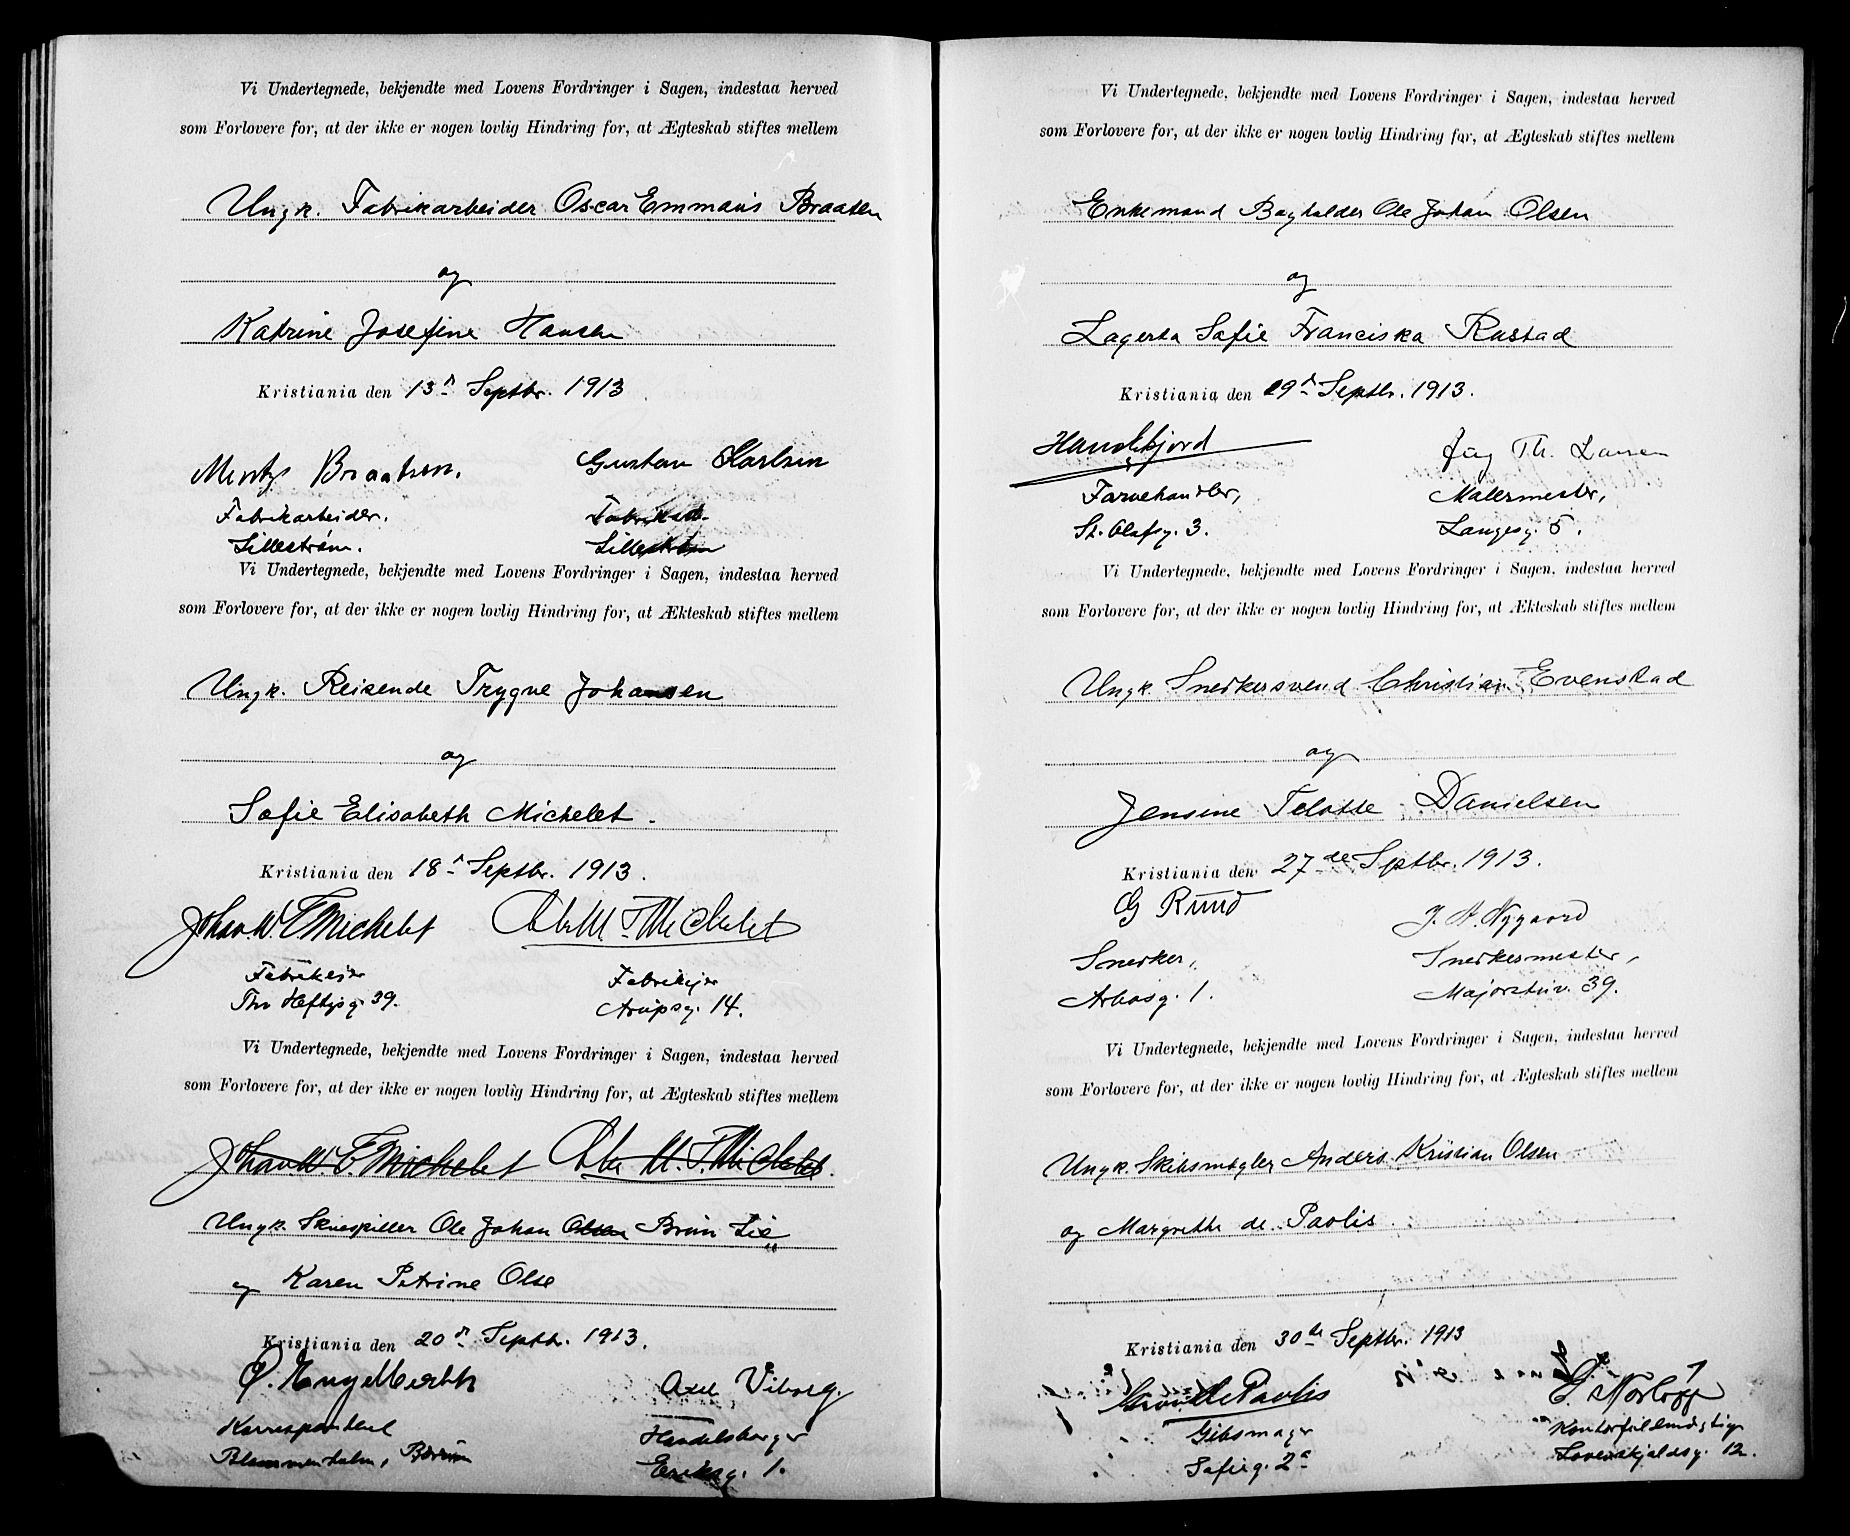 Vi Undertegnede, bekjendte med Lovens Fordringer i Sagen, indestaa herved
som Forlovere for, at der ikke er nogen lovlig Hindring for, at Ægteskab stiftes mellem
Ungk. Fabrikarbeider Oscar Emmanis Braaten
og
Katrine Josefine Hansen
Kristiania den 13d Septbr. 1913
Mentz Braatsen. Gustav Karlsen
Fabrikarbeider. Fabrikarb.
Lillestrøm. Lillestrøm
Vi Undertegnede, bekjendte med Lovens Fordringer i Sagen, indestaa herved
som Forlovere for, at der ikke er nogen lovlig Hindring for, at Ækteskab stiftes mellem
Ungk. Reisende Trygve Johansen
og
Sofie Elisabeth Michelet.
Kristiania den 18d Septbr. 1913.
Johan W. F. Michelet M. F. Michelet
Fabrikeier Fabrikeier
Tho Heftysg. 39. Arupsg. 14.
Vi Undertegnede, bekjendte med Lovens Fordringer i Sagen, indestaa herved
som Forlovere for, at der ikke er nogen lovlig Hindring for, at Ægteskab stiftes mellem
Johan W. F. Michelet M. F. Michelet.
Ungk. Skuespiller Ole Johan Olsen Brun Lie
og Karen Petrine Olse
Kristiania den 20d Septbr. 1913.
Axel Viborg.
Korrespondent Handelsborger
Blommenholm, Bærum Eriksg. 1.
Vi Undertegnede, bekjendte med Lovens Fordringer i Sagen, indestaa herved
som Forlovere for, at der ikke er nogen lovlig Hindring for, at Ægteskab stiftes mellem
Enkemand Bogholder Ole Johan Olsen
og
Lagerta Sofie Franciska Rustad
Kristiania den 19d Septbr. 1913.
Th. Larsen
Farvehandler, Malermester,
St. Olafsg. 3. Langesg. 5.
Vi Undertegnede, bekjendte med Lovens Fordringer i Sagen, indestaa herved
som Forlovere for, at der ikke er nogen lovlig Hindring for, at Ækteskab stiftes mellem
Ungk. Snedkersvend Christian Evenstad
og
Jensine Telotte Danielsen
Kristiania den 27de Septbr. 1913.
G Ruud J. A. Nygaard
Snedker, Snedkermester,
Arbosg. 1. Majorstuv. 39.
Vi Undertegnede, bekjendte med Lovens Fordringer i Sagen, indestaa herved
som Forlovere for, at der ikke er nogen lovlig Hindring for, at Ægteskab stiftes mellem
Ungk. Skibsmægler Anders Kristian Olsen
og Margrethe de Paolis.
Kristiania den 30de Septbr. 1913
de Paolis
Gibsmager Kontorfuldmægtig
Sofieg. 2a Løvenskjoldsg. 12.